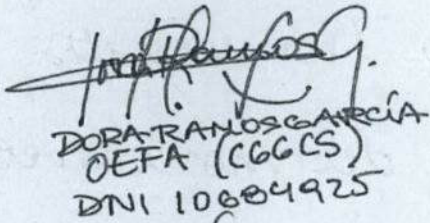 DORA RAMOS GARCÍA
OEFA (CGGCS)
DNI 10684925